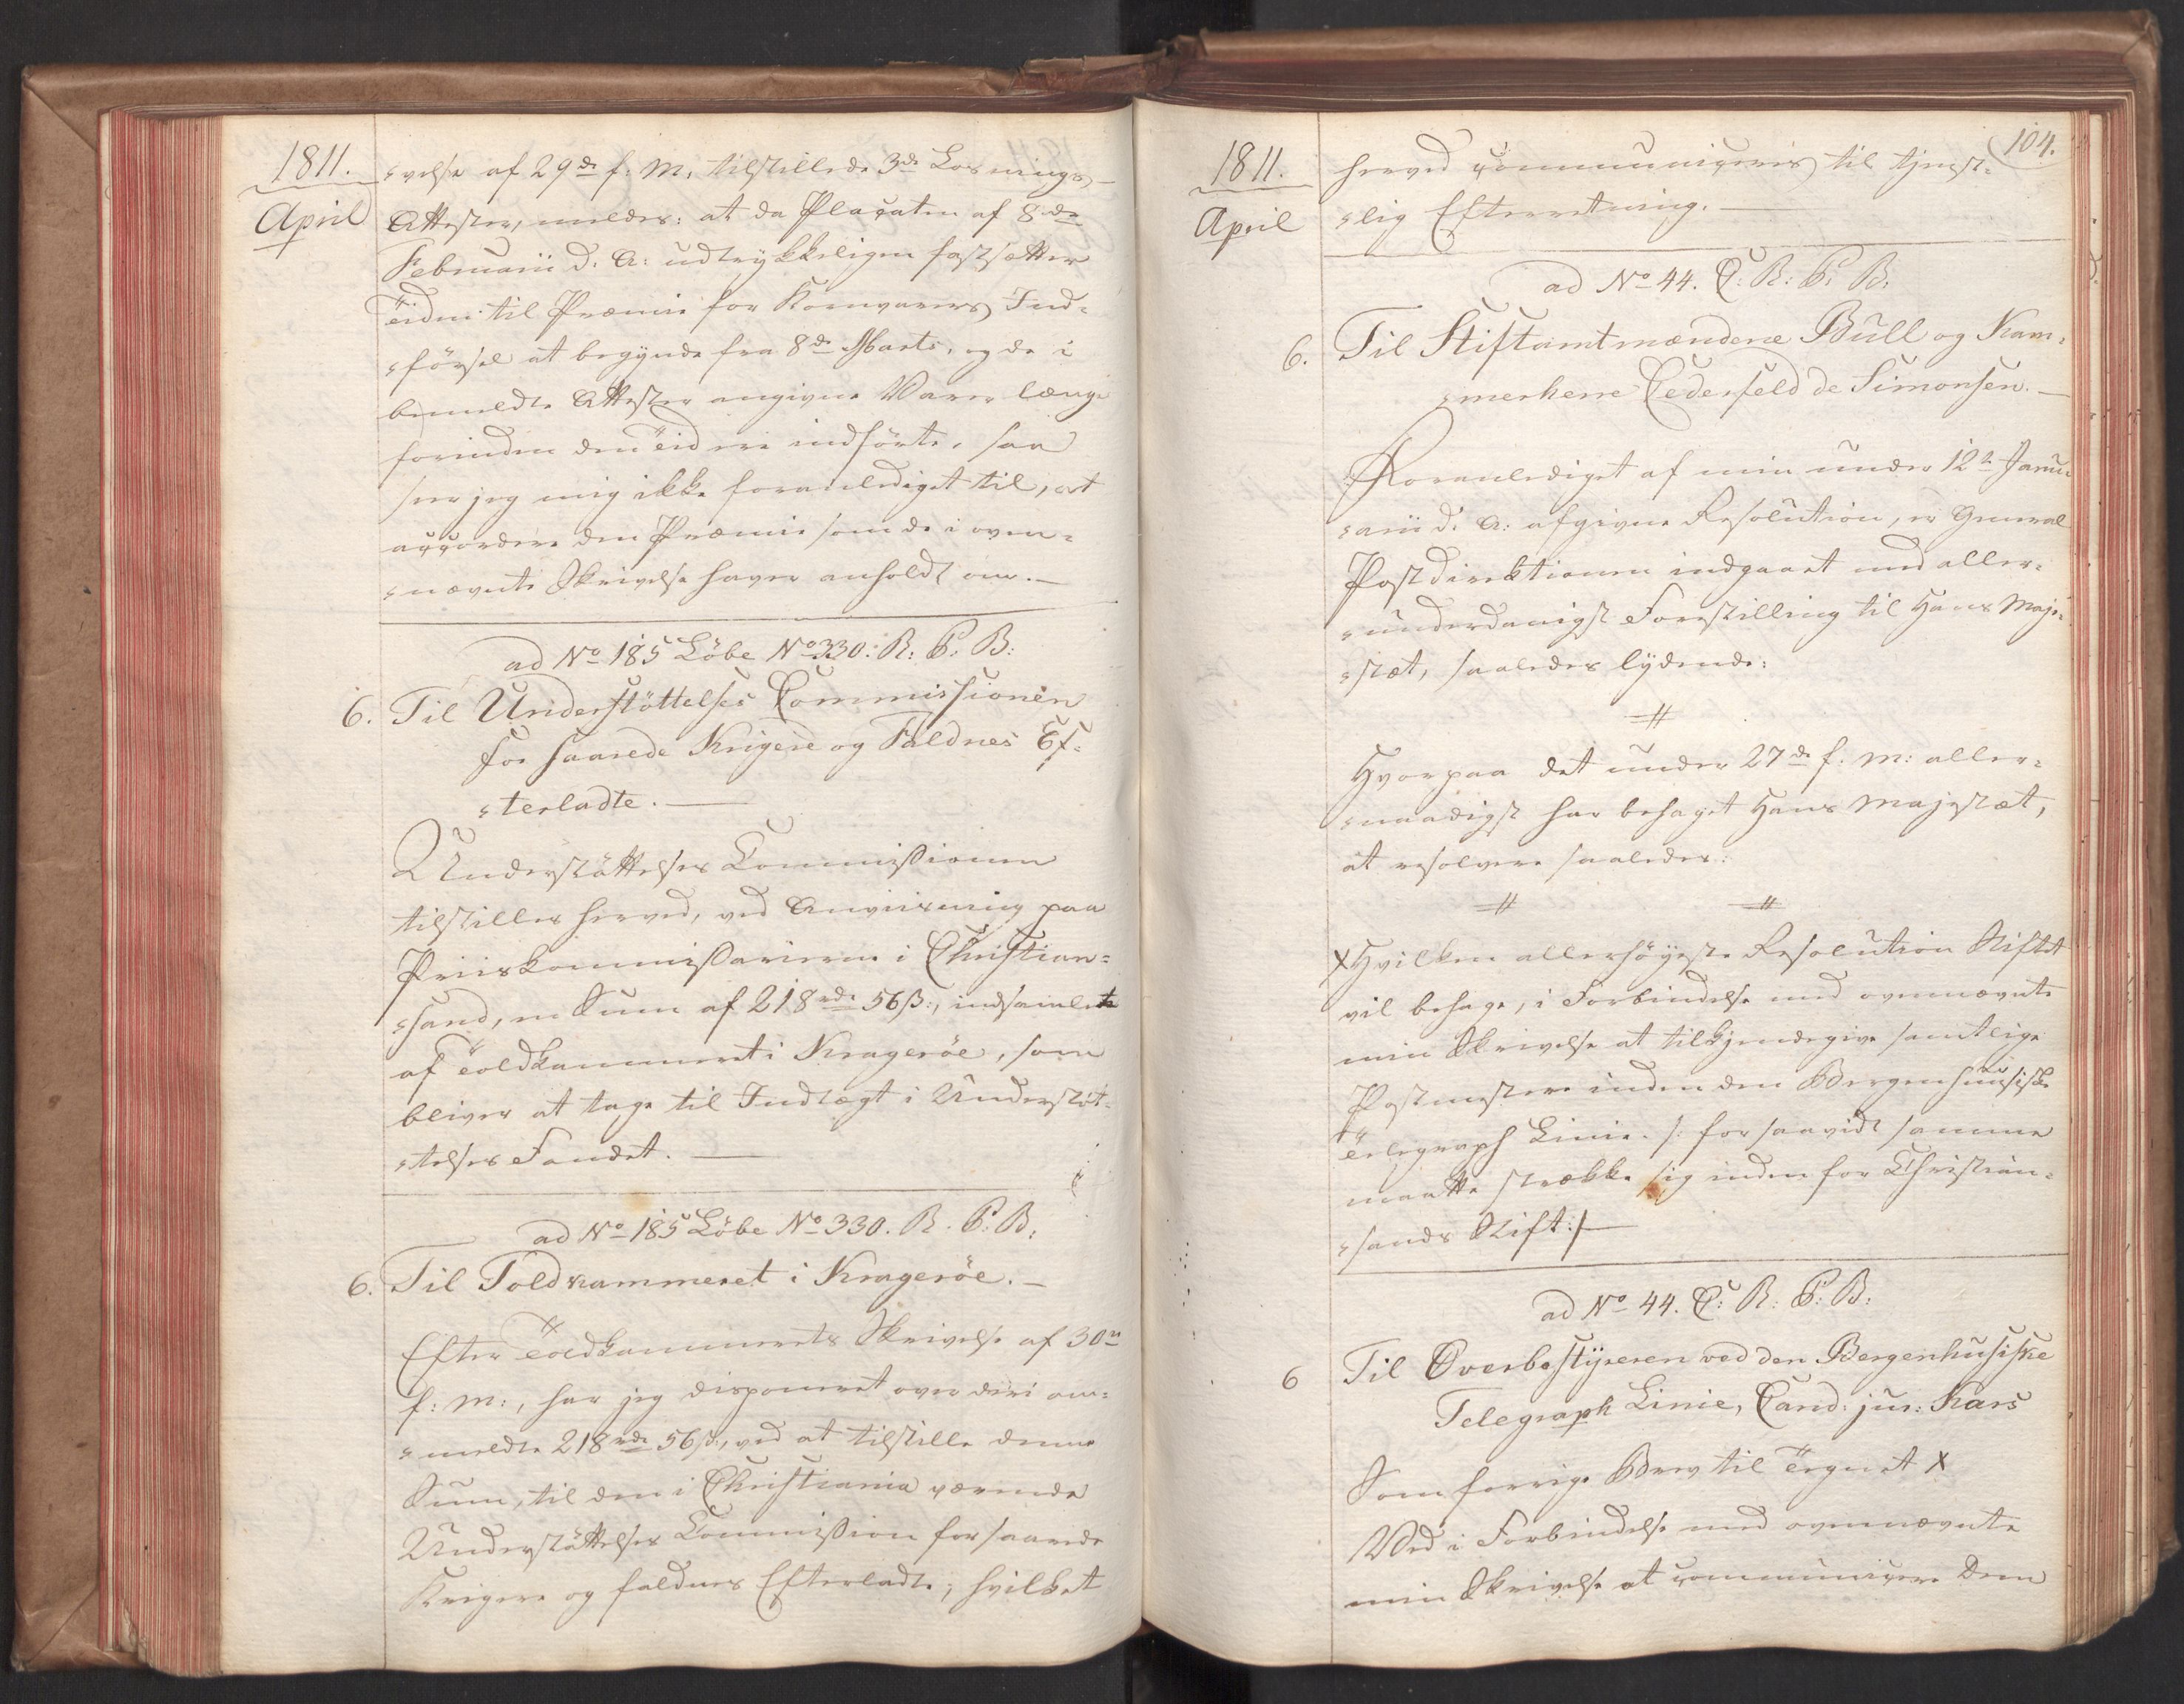 1811.
April
velse af 29de f: M: tilstillede 3de Losnings-
Attester, meldes: at da Placaten af 8de
Februarii d: A: udtrykkeligen fastsætter
Tiden til Præmie for Kornvarers Ind-
førsel at begynde fra 8de Marts, og de i
bemeldte Attester angivne Varer længe
forinden den Tid ere indførte, saa
seer jeg mig ikke foranlediget til, at
accordere den Præmie som de i oven-
nævnte Skrivelse haver anholdt om.-
ad No 185 Løbe No 330: R: P: B:
6. Til Understøttelses Commissionen
for saarede Krigere og Faldnes Ef-
terladte.-
Understøttelses Commissionen
tilstilles herved, ved Anviisning paa
Priiskommissairerne i Christian-
sand, en Sum af 218 rdr 56 ß:, indsamlet
af Toldkammeret i Kragerøe, som
bliver at tage til Indtægt i Understøt-
telses Fondet.-
ad No 185 Løbe No 330. R. P: B:
6. Til Toldkammeret i Kragerøe.-
Efter Toldkammerets Skrivelse af 30te
f: M:, har jeg disponeret over deri om-
meldte 218 rdr 56 ß:, ved at tilstille denne
Sum, til den i Christiania værende
Understøttelses Commission for saarede
Krigere og faldnes Efterladte; hvilket
104.
1811.
April
herved communiceres til tjenst-
lig Efterretning.-
ad No 44. C: R: P: B:
6. Til Stiftamtmændene Bull og Kam-
merherre Cederfeld de Simonsen.-
Foranlediget af min under 12te Janu-
arii d: A: afgivne Resolution, er General
Postdirektionen indgaaet med aller-
underdanigst Forestilling til Hans Maje-
stæt, saaledes lydende:
#
Hvorpaa det under 27de f: M: aller-
naadigst har behaget Hans Majestæt,
at resolvere saaledes:
# #
X Hvilken allerhøyeste Resolution Stiftet
vil behage, i Forbindelse med ovennævnte
min Skrivelse at tilkjendegive samtlige
Postmestere inden den Bergenhuusiske
Telegraph Linie /: forsaavidt samme
maatte strække sig inden for Christian-
sands Stift:/-
ad No 44. C: R: P: B:
6 Til Overbestyreren ved den Bergenhusiske
Telegraph Linie, Cand: jur: Kars
Som forrige Brev til Tegnet X
Ved i Forbindelse med ovennævnte
min Skrivelse at communicere Dem